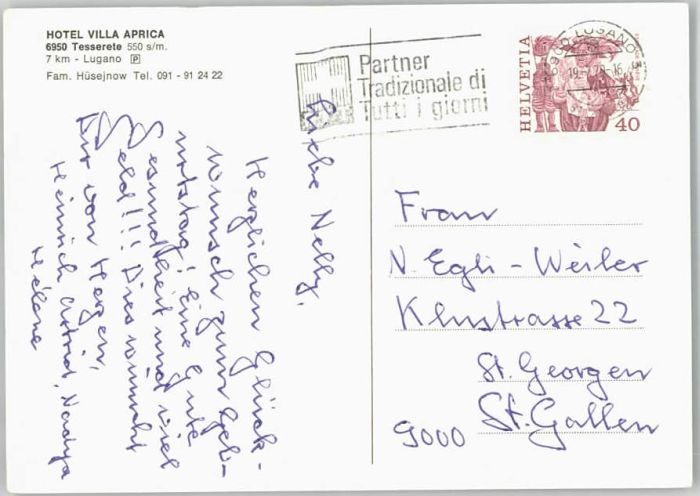 HOTEL VILLA APRICA
6950 Tesserete 550 s/m.
7 km - Lugano P
Fam. Hüsejnow Tel. 091 - 91 24 22
Partner
Tradizionale di
Tutti i giorni
LUGANO
HELVETIA
40
Liebe Nelly,
Herzlichen Glück-
wunsch zum Geb-
urtstag! Eine gute
Gesundheit und viel
Geld!!! Dies wünscht
Dir von Herzen,
Heinrich Astrid, Nadja
Hélène
Frau
N. Egli - Weiler
22
St. Georgen
9000 St. Gallen